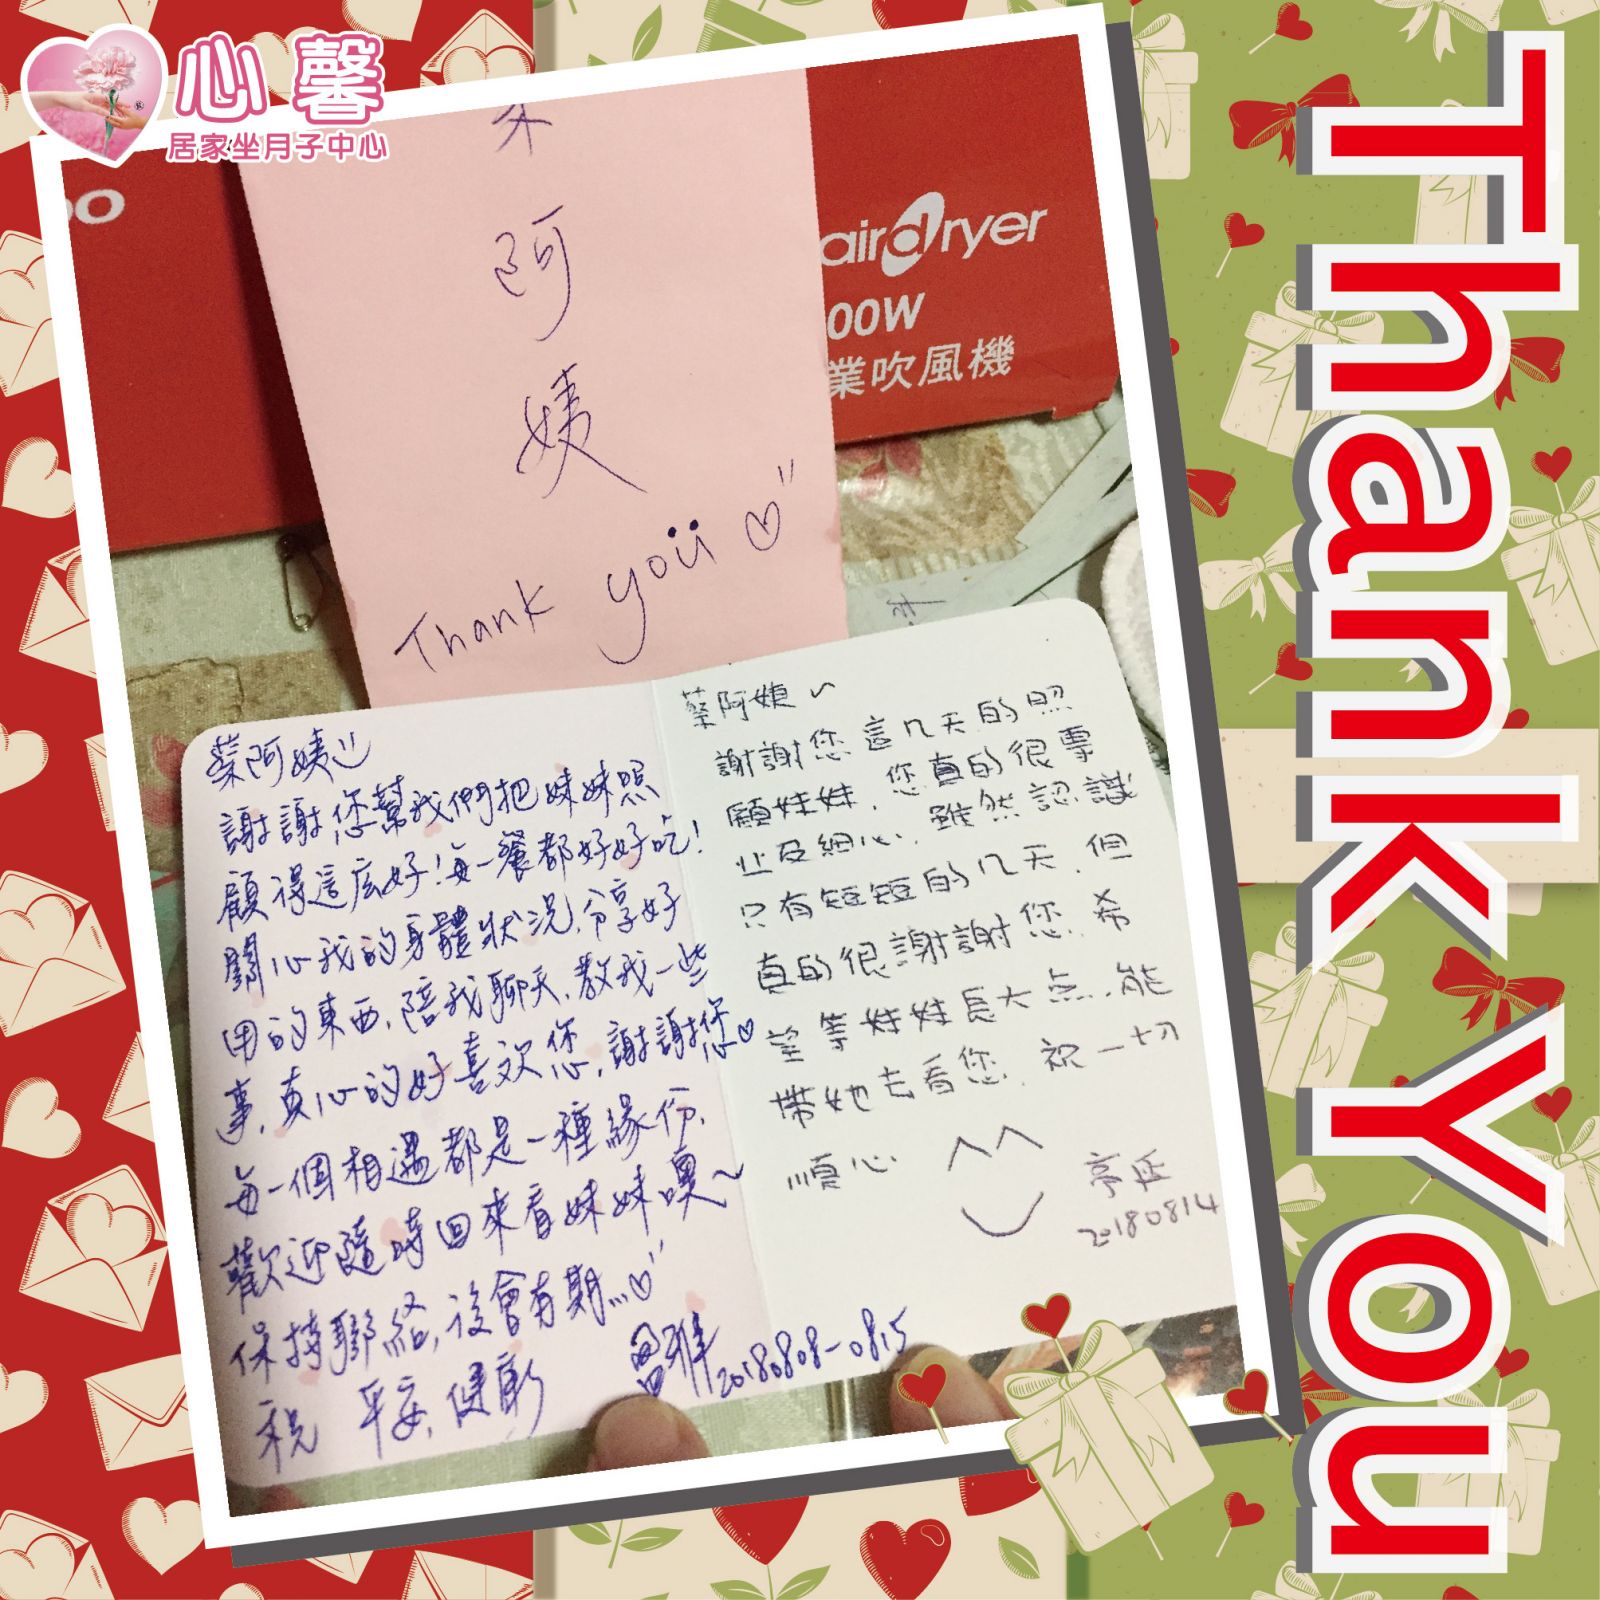 心馨
居家坐月子中心
airdryer
00W
業吹風機
阿
姨
Thank you
蔡阿姨
謝謝您幫我們把妹妹照
顧得這麼好!每一餐都好好吃!
關心我的身體狀況,分享好
用的東西,陪我聊天,教我一些
事,真心的好喜欢您,謝謝您
每一個相遇都是一種緣份,
歡迎隨時回來看妹妹噢~
保持聯絡,後會有期...
祝 平安,健康
20180808-0815
蔡阿姨~
謝謝您這几天的照
顧娃娃,您真的很專
业及細心,雖然認識
只有短短的几天,但
真的很謝謝您,希
望等娃娃長大点,能
帶她去看您,祝一切
順心
20180814
Thank You